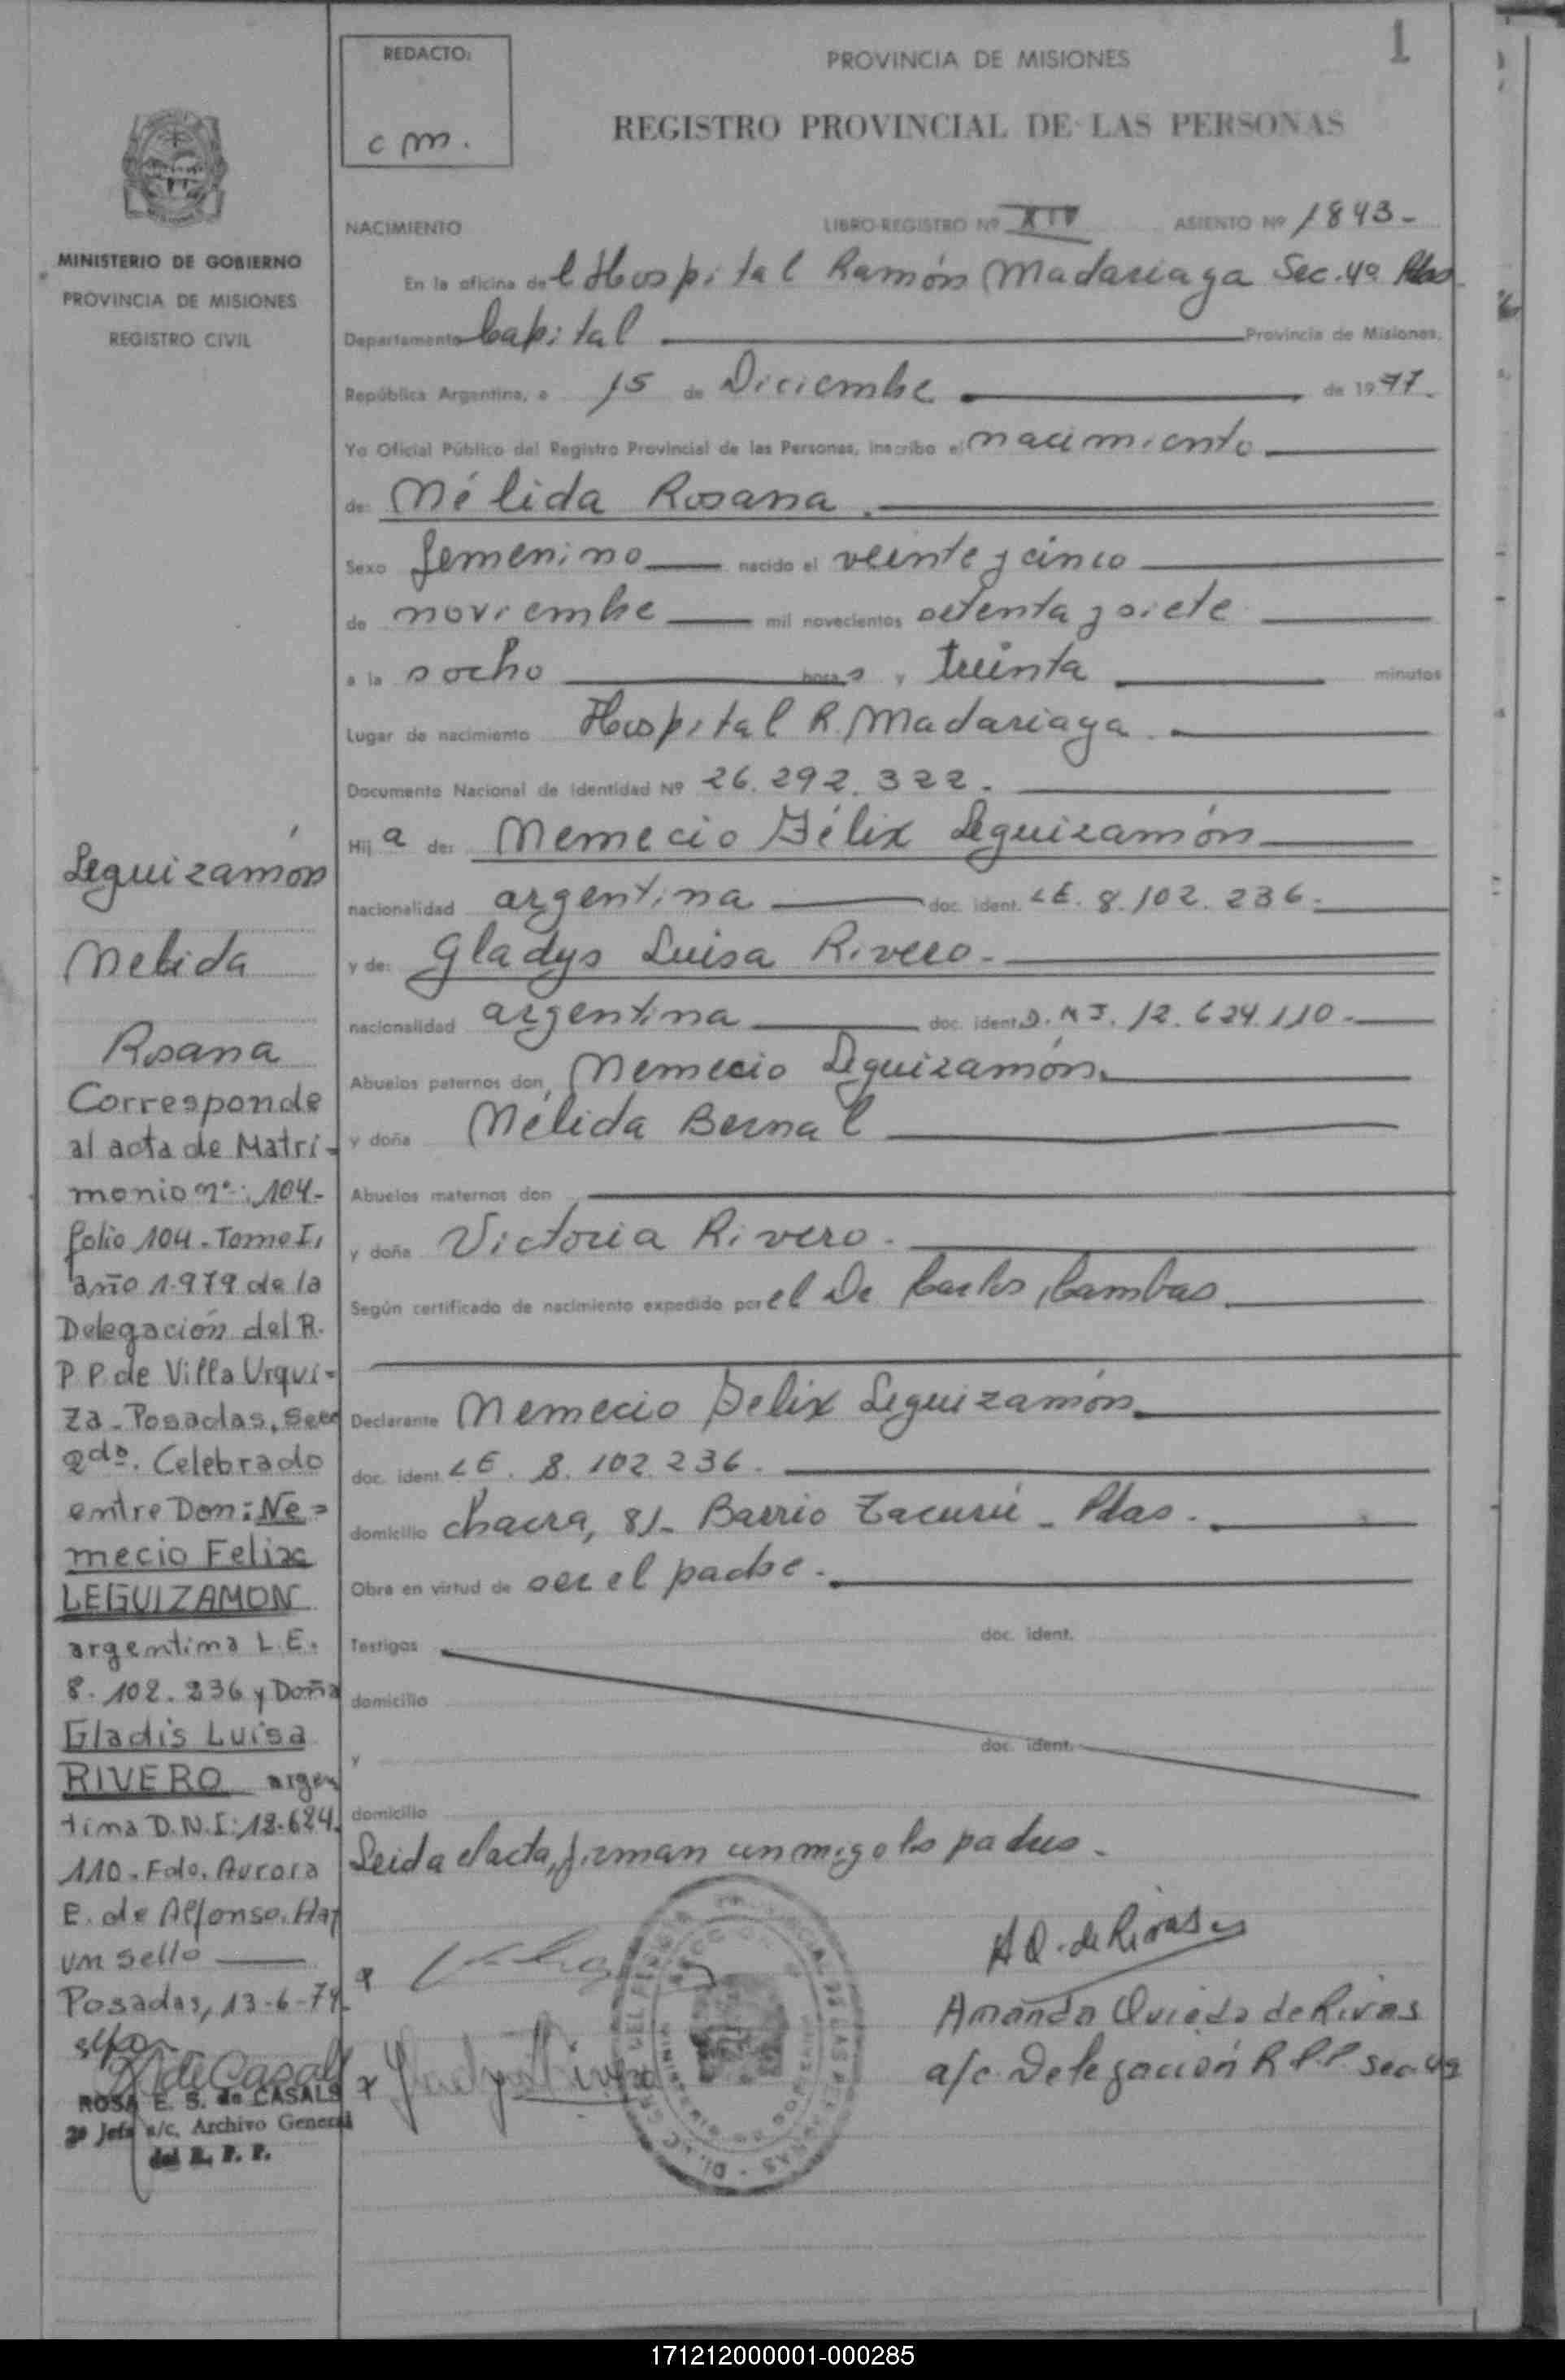 1
REDACTO:
c m.
PROVINCIA DE MISIONES
REGISTRO PROVINCIAL DE LAS PERSONAS
MINISTERIO DE GOBIERNO
PROVINCIA DE MISIONES
REGISTRO CIVIL
NACIMIENTO LIBRO-REGISTRO Nº XIV ASIENTO Nº 1843-
En la oficina del Hospital Ramón Madariaga Sec. 4º Pdas
Departamento Capital Provincia de Misiones,
República Argentina, a 15 de Diciembre de 1977.
Yo Oficial Público del Registro Provincial de las Personas, inscribo el nacimiento
de: Nélida Rosana.
Sexo femenino nacido el veinte y cinco
de noviembre mil novecientos setenta y siete
a la s ocho horas y treinta minutos
Lugar de nacimiento Hospital R. Madariaga.
Documento Nacional de Identidad Nº 26.292.322.
Hija de: Nemecio Félix Leguizamón
nacionalidad argentina doc. ident. LE. 8.102.236.
y de: Gladys Luisa Rivero-
nacionalidad argentina doc. ident. D.NI. 12.624.110-
Abuelos paternos don Nemecio Leguizamón.
y doña Nélida Bernal
Abuelos maternos don
y doña Victoria Rivero.
Según certificado de nacimiento expedido por el Dr Carlos Cambas
Declarante Nemecio Felix Leguizamón
doc. ident LE. 8.102.236.
domicilio chacra, 81- Barrio Tacurú - Pdas.
Obra en virtud de ser el padre.
Testigos doc. ident.
domicilio
y doc. ident.
domicilio
Leida el acta, firman conmigo los padres.
A O. de Rivas
Amanda Oviedo de Rivas
a/c. Delegación R.P.P. sec 4ª
Leguizamón
Nelida
Rosana
Corresponde
al acta de Matri-
monio nº: 104-
folio 104-Tomo I,
año 1.979 de la
Delegación del R.
P.P. de Villa Urqui-
za-Posadas, Secc
2da. Celebrado
entre Don: Ne=
mecio Felix
LEGUIZAMON
argentina L.E.
8.102.236 y Doña
Gladis Luisa
RIVERO argen
tina D.N.I: 12.624.
110-Fdo. Aurora
E. de Alfonso. Hay
un sello
Posadas, 13-6-79.
ROSA E. S. de CASALS
2º Jefe a/c. Archivo General
del R. P. P.
171212000001-000285